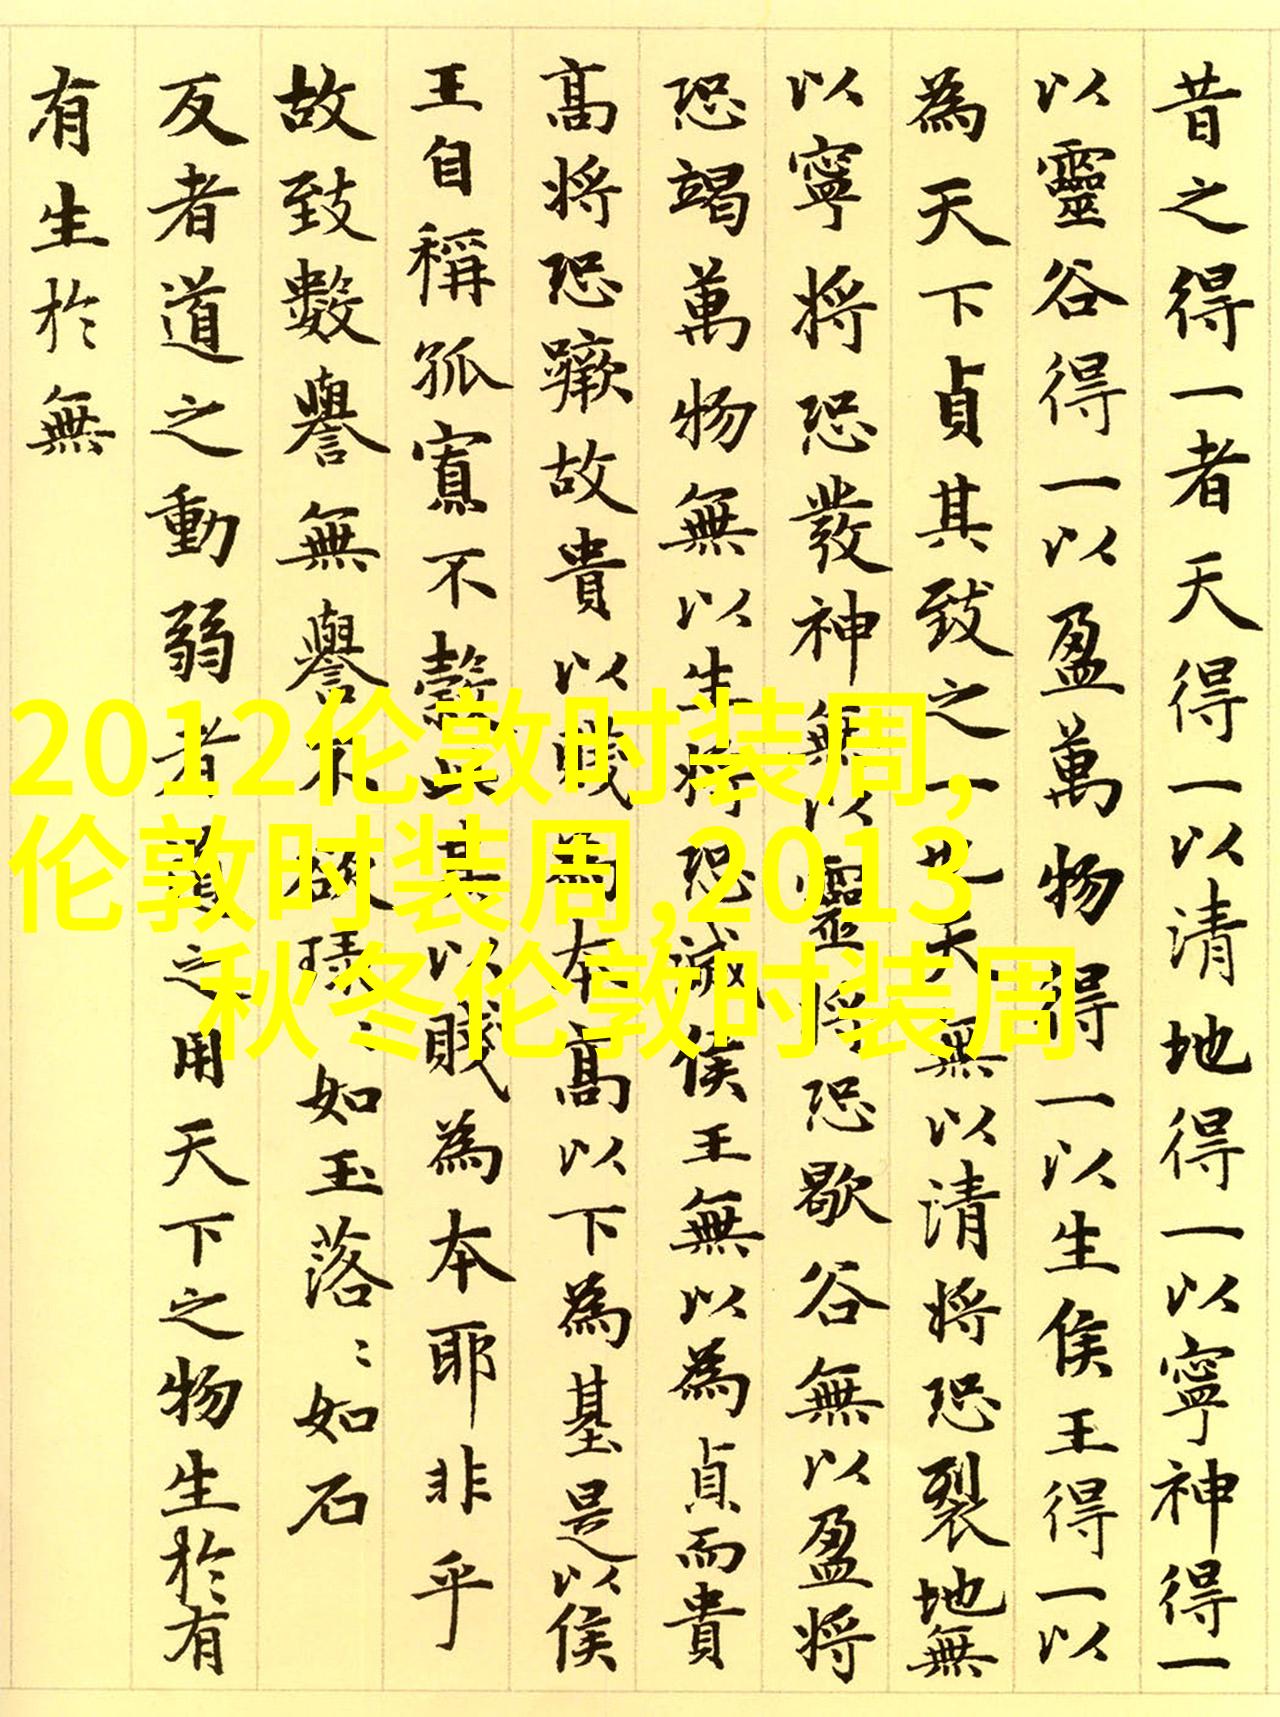 昔之得一者天得一以清地得一以寧神得一
以靈谷得一以盈萬物得一以生侯王得一以
為天下貞其致之一也天無以清將恐裂地無
以寧將恐發神無以靈將恐歇谷無以盈將
恐竭萬物無以生將恐滅侯王無以為貞而貴
高將恐蹶故貴以賤為本高以下為基是以侯
王自稱孤寡不穀此其以賤為本耶非乎
故致數譽無譽不欲琭〻如玉落〻如石
反者道之動弱者道之用天下之物生於有
有生於無
2012伦敦时装周,
伦敦时装周,2013
秋冬伦敦时装周